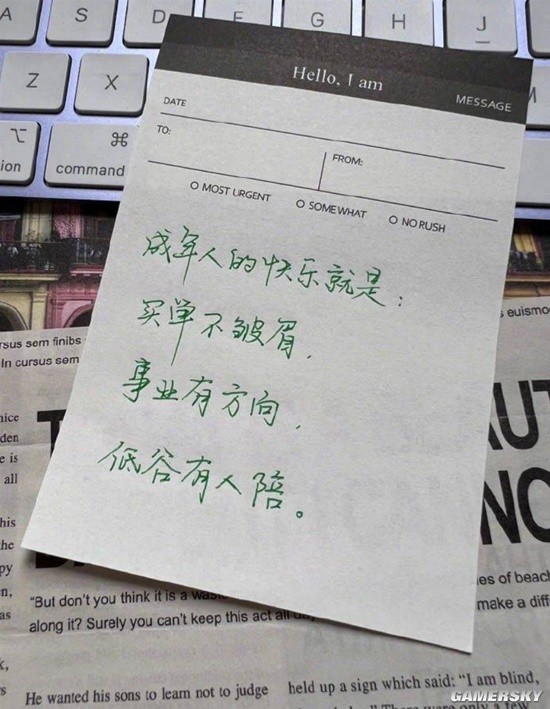 A
S
D
F
G
H
J
Z
X
M
⌥
⌘
ion
command
Hello, I am
MESSAGE
DATE
TO:
FROM:
O MOST URGENT O SOMEWHAT O NO RUSH
成年人的快乐就是:
买单不皱眉,
事业有方向,
低谷有人陪。
rsus sem finibs
In cursus sem
euismo
nice
den
e is
all
his
the
py
n,
as
AUT
NO
"But don't you think it is a
along it? Surely you can't keep this act all
es of beach
make a diff
k,
s
He wanted his sons to learn not to judge
held up a sign which said: "I am blind,
GAMERSKY